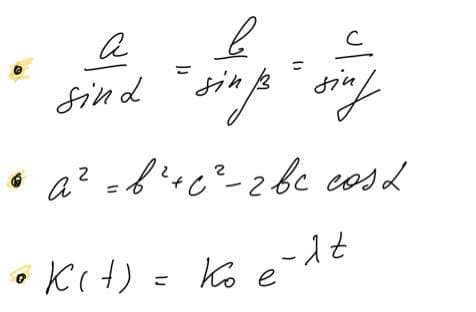 a/sin α = b/sin β = c/sin γ
a² = b² + c² - 2bc cos α
K(t) = K₀ e^{-λt}